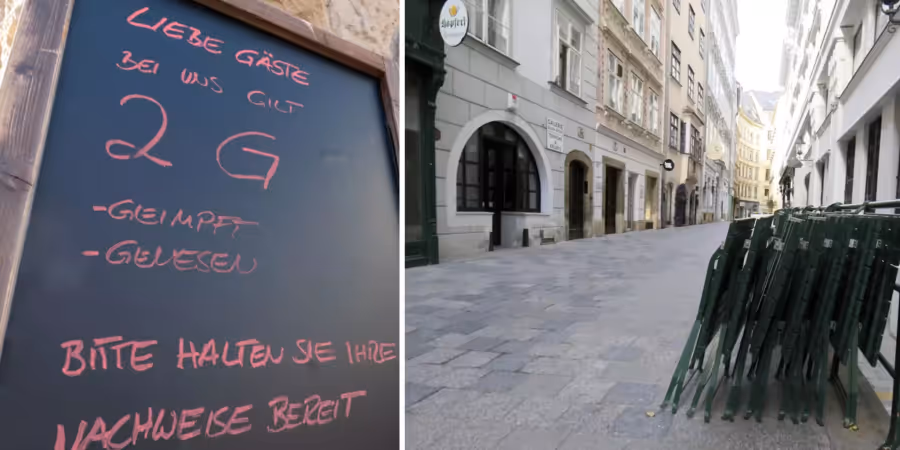 LIEBE GÄSTE
BEI UNS GILT
2 G
- GEIMPFT
- GENESEN
BITTE HALTEN SIE IHRE
NACHWEISE BEREIT
Köpferl